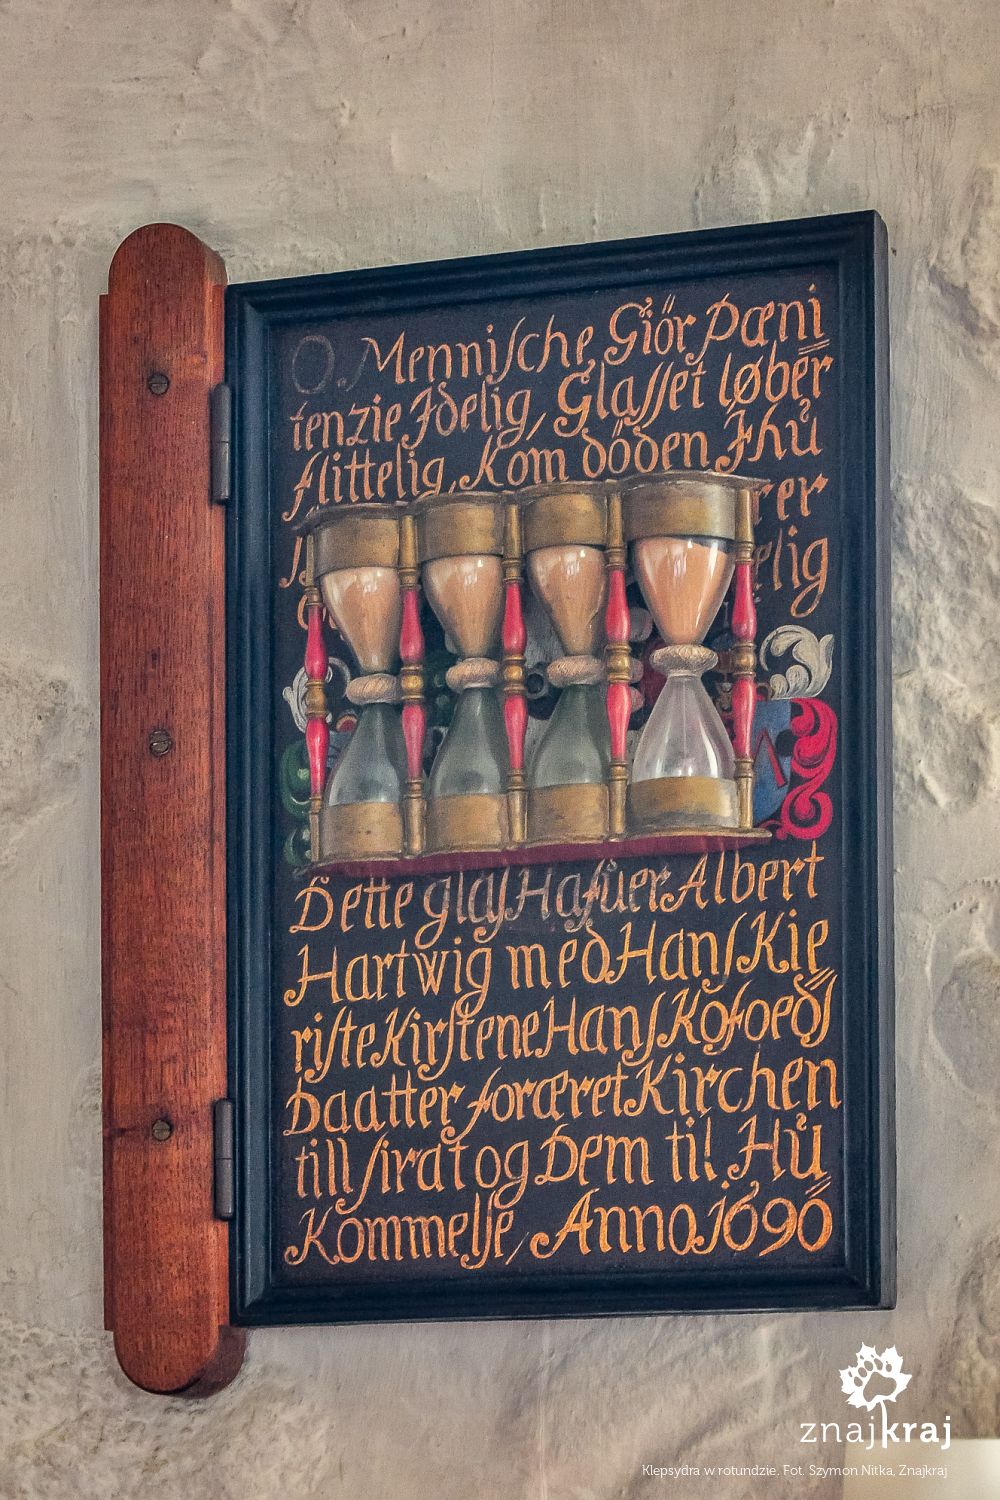 O Menniſche Giör Pæni
tenzie Idelig, Glaſſet løber
flittelig, Kom döden Ihů
rer
elig
Dette glaſ Hafůer Albert
Hartwig med Hanſ Kie
riſte Kirſtene Hanſ Kofoedſ
Daatter foræret Kirchen
till ſirat og Dem til Hů
Kommelſe, Anno 1690
znajkraj
Klepsydra w rotundzie. Fot. Szymon Nitka, Znajkraj